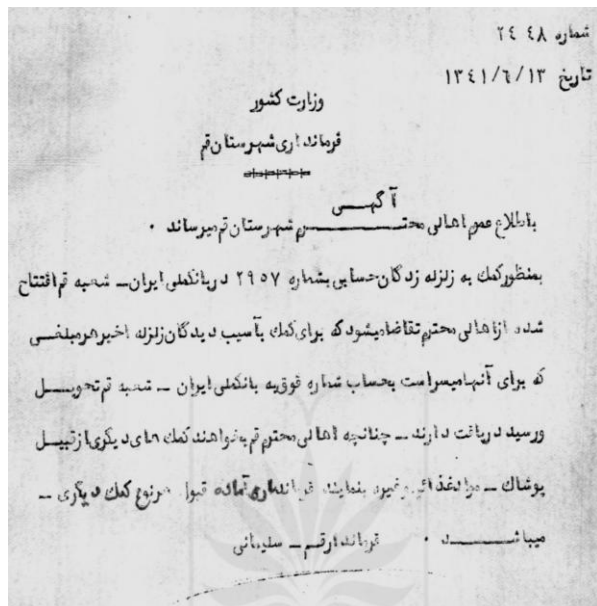 شماره ۲۴۴۸
تاریخ ۱۳۴۱/۶/۱۳
وزارت کشور
فرمانداری شهرستان قم
آگهی
باطلاع عموم اهالی محترم شهرستان قم میرساند .
بمنظور کمک به زلزله زدگان حسابی بشماره ۲۹۵۷ در بانک ملی ایران ــ شعبه قم افتتاح
شده از اهالی محترم تقاضا میشود که برای کمک بآسیب دیدگان زلزله اخیر هر مبلغی
که برای آنها میسر است بحساب شماره فوق به بانک ملی ایران ــ شعبه قم تحویل
و رسید دریافت دارند ــ چنانچه اهالی محترم قم بخواهند کمک های دیگری از قبیل
پوشاک ــ مواد غذائی و غیره بنمایند فرمانداری آماده قبول هر نوع کمک دیگری ــ
میباشد . فرماندار قم ــ سلیمانی